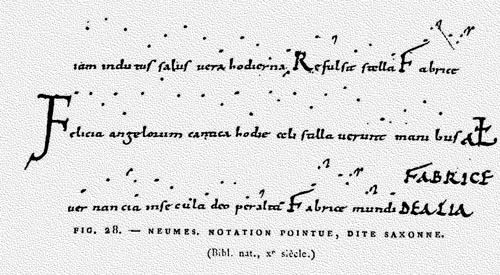 iam indutus salus uera hodierna Refulsit stella Fabrice
Felicia angelorum camica hodie celi stella uerunt manu bus a
FABRICE
uer nan cia in se cula deo per alta Fabrice mundi DE ALIA
FIG. 28. — NEUMES. NOTATION POINTUE, DITE SAXONNE.
(Bibl. nat., xᵉ siècle.)